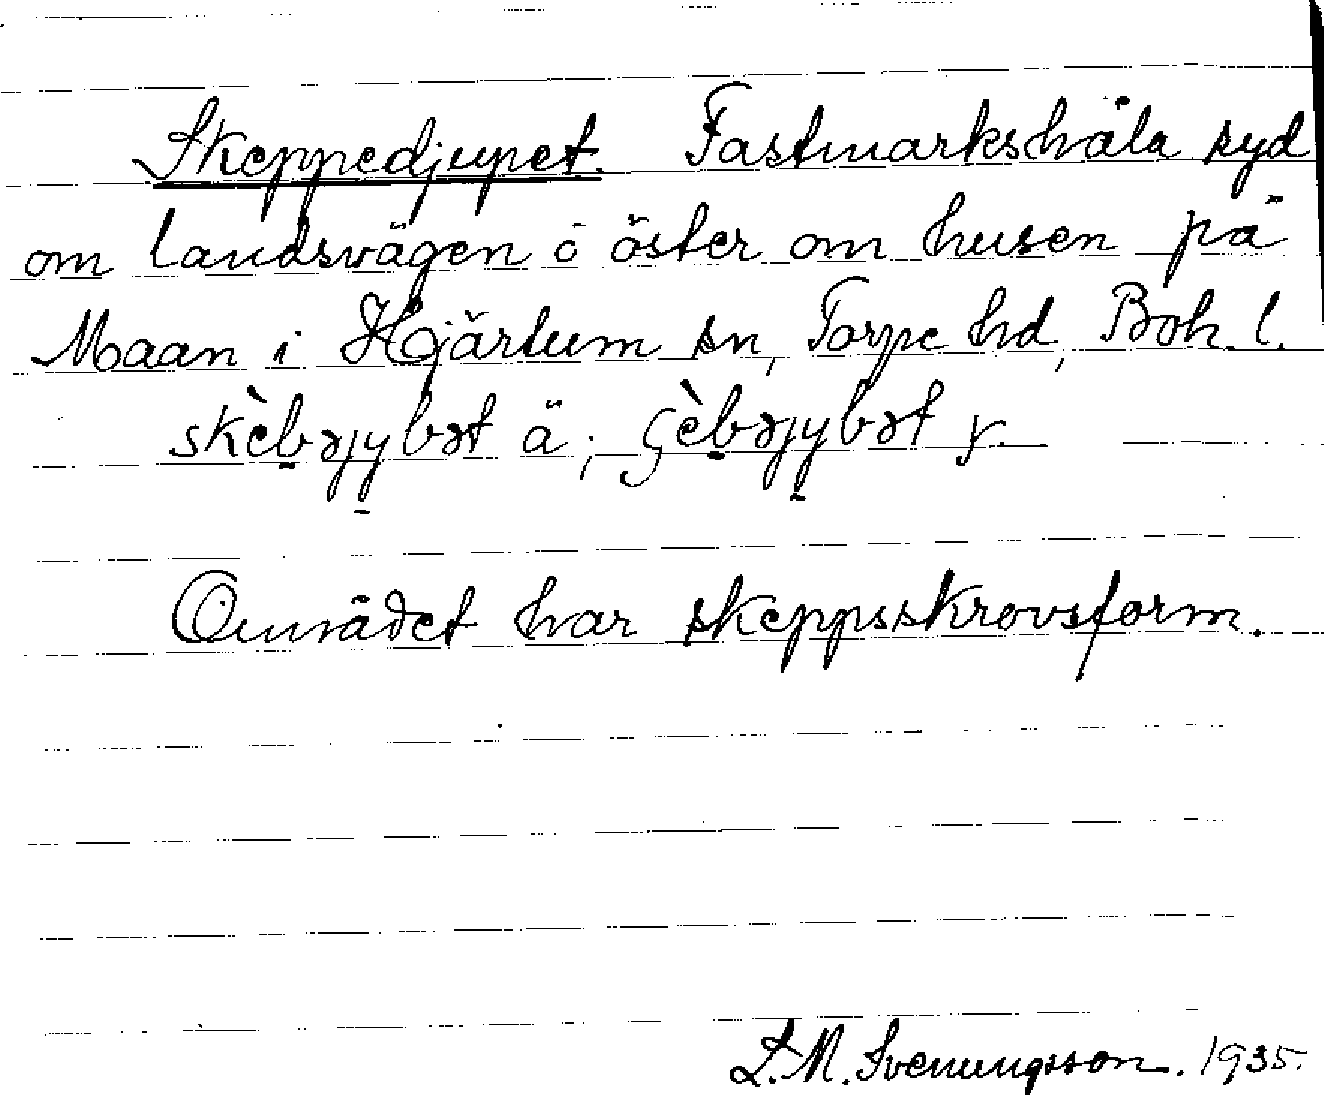 Skeppedjupet. Fastmarkshåla syd
om landsvägen ö öster om husen på
Maan i Hjärtum sn, Torpe hd, Boh. l.
skèb̠əjy̠bət ä; ςèb̠əjy̠bət y.
Området har skeppsskrovsform.
L. M. Svenungsson. 1935.